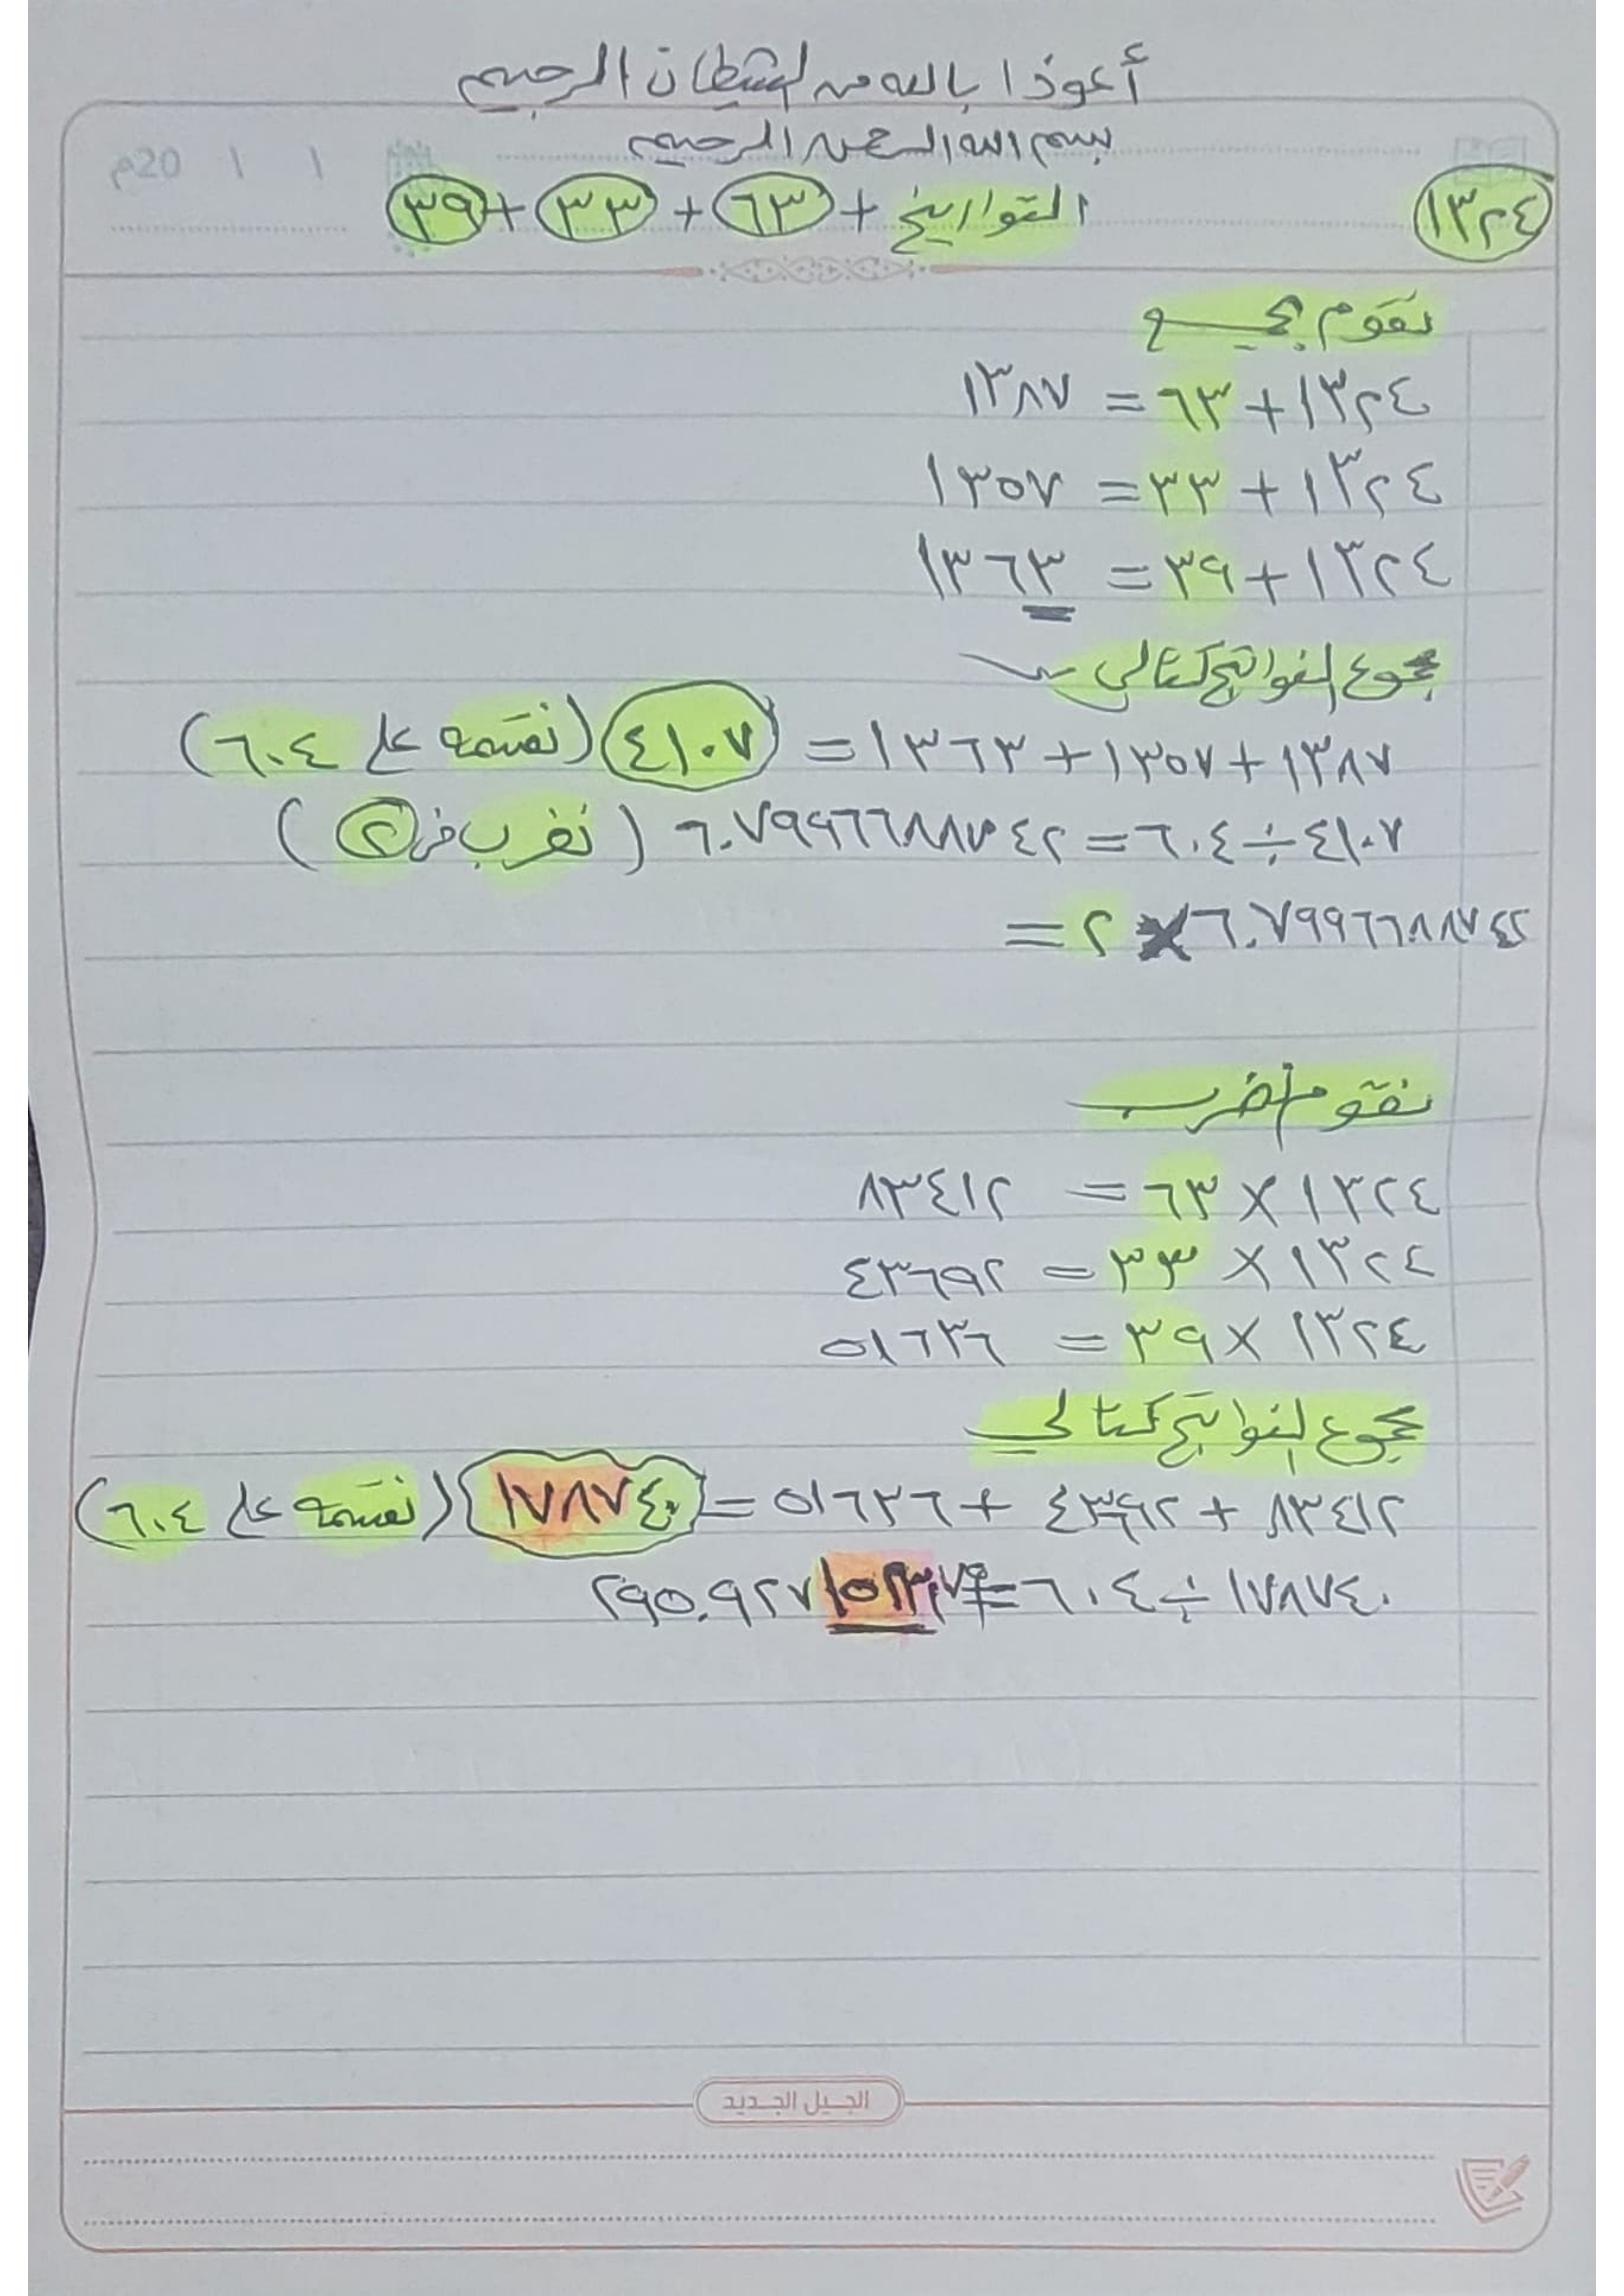 أعوذا بالله من الشيطان الرجيم
بسم الله الرحمن الرحيم
20م / /
١٣٢٤ التواريخ + ٦٣ + ٣٣ + ٣٩
نقوم بجمع
١٣٢٤ + ٦٣ = ١٣٨٧
١٣٢٤ + ٣٣ = ١٣٥٧
١٣٢٤ + ٣٩ = ١٣٦٣
مجموع النواتج كتالي
١٣٨٧ + ١٣٥٧ + ١٣٦٣ = ٤١٠٧ (نقسمه على ٦٠٤)
٤١٠٧ ÷ ٦٠٤ = ٦.٧٩٩٦٦٨٨٧٤٢ (نضرب في ٢)
٦.٧٩٩٦٦٨٨٧٤٢ × ٢ =
نقوم بضرب
١٣٢٤ × ٦٣ = ٨٣٤١٢
١٣٢٤ × ٣٣ = ٤٣٦٩٢
١٣٢٤ × ٣٩ = ٥١٦٣٦
مجموع النواتج كتالي
٨٣٤١٢ + ٤٣٦٩٢ + ٥١٦٣٦ = ١٧٨٧٤٠ (نقسمه على ٦٠٤)
١٧٨٧٤٠ ÷ ٦٠٤ =
الجيل الجديد